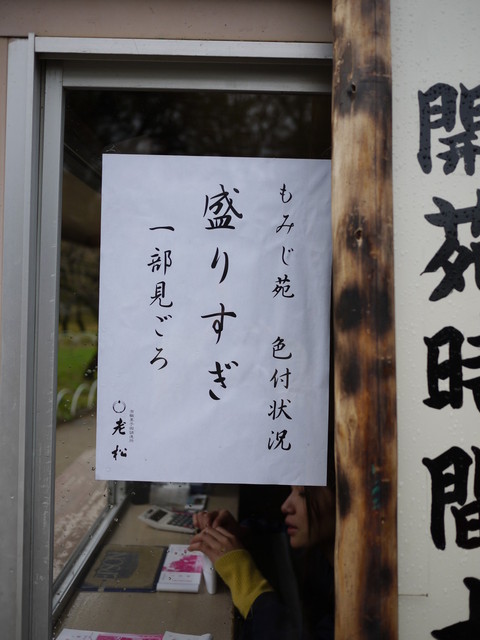 開苑時間
もみじ苑 色付状況
盛りすぎ
一部見ごろ
老松